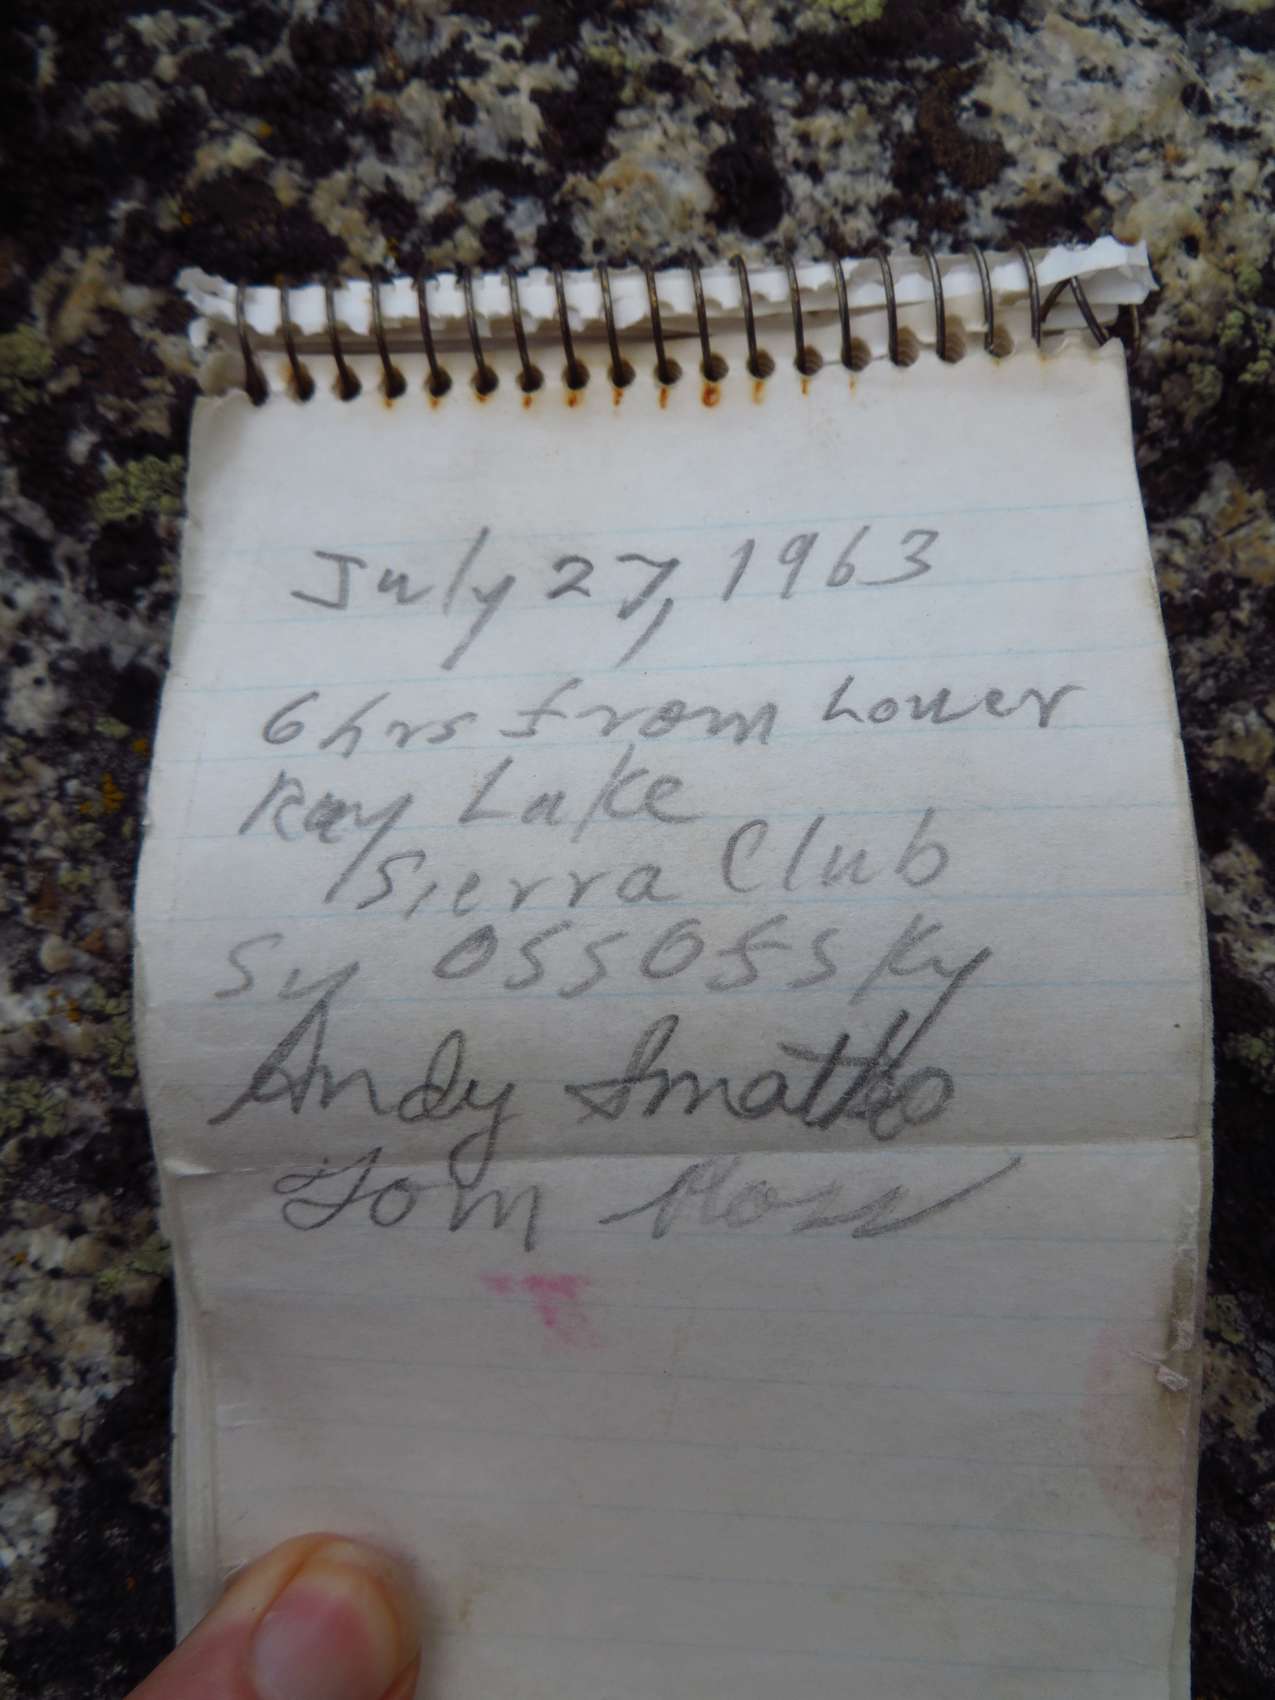 July 27, 1963
6 hrs from Lower
Ray Lake
Sierra Club
Sy Ossofsky
Andy Smatko
Tom Ross